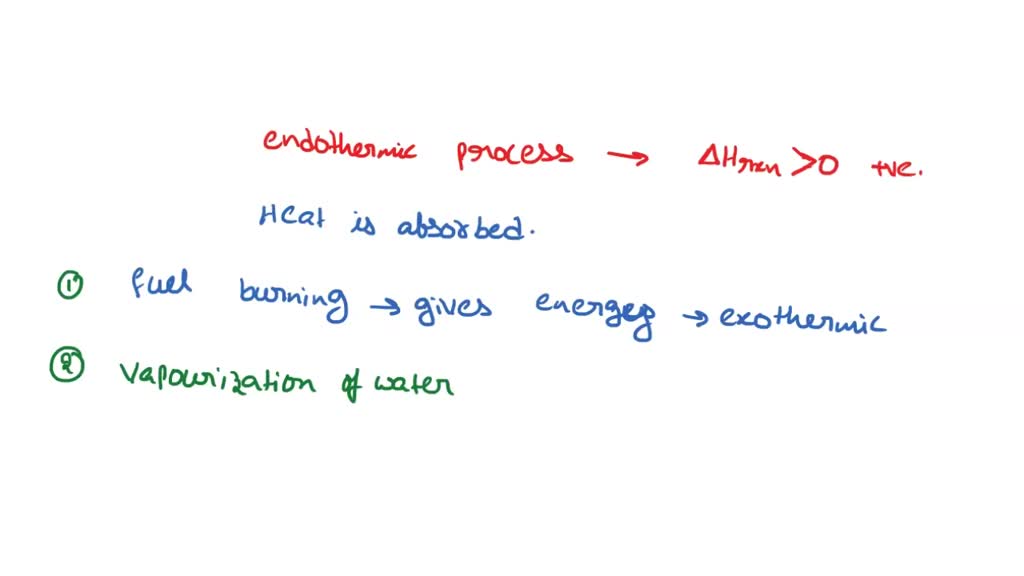 endothermic process → ΔHrxn >0 +ve.
Heat is absorbed.
① fuel burning → gives energy → exothermic
② vapourization of water